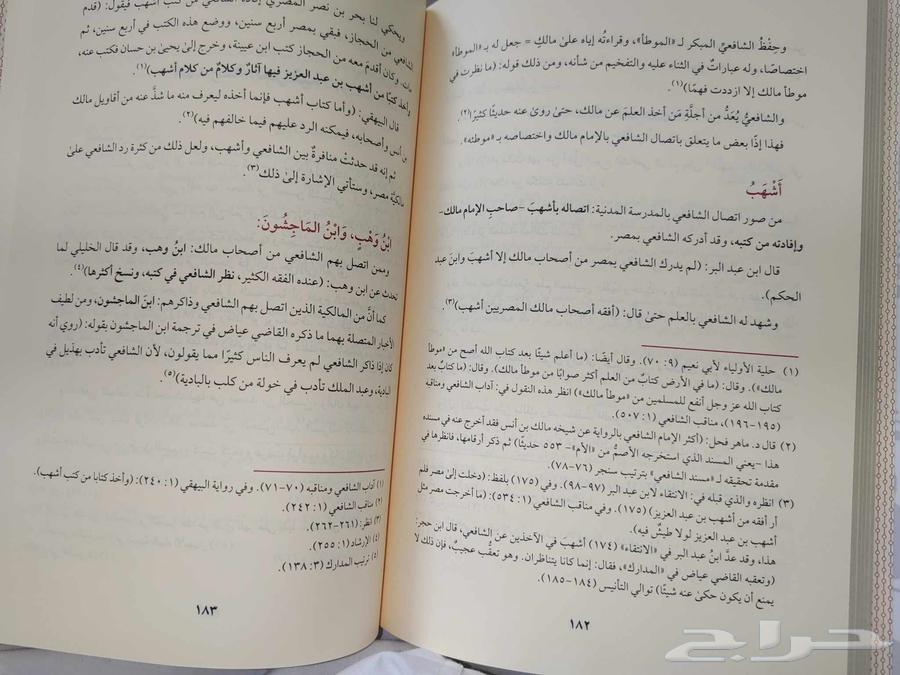 وحِفْظُ الشافعيِّ المبكر لـ «الموطأ»، وقراءتُه إياه علىٰ مالكٍ = جعل له بـ «الموطأ»
اختصاصًا، وله عباراتٌ في الثناء عليه والتفخيم من شأنه، ومن ذلك قوله: (ما نظرت في
موطأ مالك إلا ازددت فهمًا)(١).
والشافعيُّ يُعَدُّ من أجلَّةِ مَن أخذ العلمَ عن مالك، حتىٰ روىٰ عنه حديثًا كثيرًا(٢).
فهذا إذًا بعض ما يتعلق باتصال الشافعي بالإمام مالك واختصاصه به «موطئه».
أَشْهَبُ
من صور اتصال الشافعي بالمدرسة المدنية: اتصاله بأشهبَ -صاحبِ الإمام مالك-
وإفادته من كتبه، وقد أدركه الشافعي بمصر.
قال ابن عبد البر: (لم يدرك الشافعي بمصر من أصحاب مالك إلا أشهبَ وابنَ عبد
الحكم).
وشهد له الشافعي بالعلم حتىٰ قال: (أفقه أصحاب مالك المصريين أشهب)(٣).
(١) حلية الأولياء لأبي نعيم (٩: ٧٠). وقال أيضًا: (ما أعلم شيئًا بعد كتاب الله أصح من «موطأ
مالك»). وقال: (ما في الأرض كتابٌ من العلم أكثر صوابًا من موطأ مالك). وقال: (ما كتابٌ بعد
كتاب الله عز وجل أنفع للمسلمين من «موطأ مالك») انظر هذه النقول في: آداب الشافعي ومناقبه
(١٩٥-١٩٦)، مناقب الشافعي (١: ٥٠٧).
(٢) قال د. ماهر فحل: (أكثر الإمام الشافعي بالرواية عن شيخه مالك بن أنس فقد أخرج عنه في مسنده
هذا -يعني المسند الذي استخرجه الأصمُّ من «الأم»- ٥٥٣ حديثًا) ثم ذكر أرقامها، فانظرها في
مقدمة تحقيقه لـ «مسند الشافعي» بترتيب سنجر (٧٦-٧٨).
(٣) انظره والذي قبله في: الانتقاء لابن عبد البر (٩٧-٩٨). وفي (١٧٥) بلفظ: (دخلت إلىٰ مصر فلم
أر أفقه من أشهب بن عبد العزيز) (١٧٥). وفي مناقب الشافعي (١: ٥٣٤): (ما أخرجت مصر مثل
أشهب بن عبد العزيز لولا طيشٌ فيه).
هذا، وقد عدَّ ابنُ عبد البر في «الانتقاء» (١٧٤) أشهبَ في الآخذين عن الشافعي، قال ابن حجر:
(وتعقبه القاضي عياض في «المدارك»، فقال: إنما كانا يتناظران. وهو تعقب عجيبٌ، فإن ذلك لا
يمنع أن يكون حكىٰ عنه شيئًا) توالي التأنيس (١٨٤-١٨٥).
١٨٢
ويحكي لنا بحر بن نصر المصري إفادة الشافعي من كتب أشهب فيقول: (قدم
الشافعي من الحجاز، فبقي بمصر أربع سنين، ووضع هذه الكتب في أربع سنين، ثم
مات. وكان أقدمَ معه من الحجاز كتب ابن عيينة، وخرج إلىٰ يحيىٰ بن حسان فكتب عنه،
وأخذ كتبًا من أشهب بن عبد العزيز فيها آثارٌ وكلامٌ من كلام أشهب)(١).
قال البيهقي: (وأما كتاب أشهب فإنما أخذه ليعرف منه ما شذَّ عنه من أقاويل مالك
بن أنس وأصحابه، فيمكنه الرد عليهم فيما خالفهم فيه)(٢).
ثم إنه قد حدثتْ منافرةٌ بين الشافعي وأشهب، ولعل ذلك من كثرة رد الشافعي علىٰ
مالكيَّة مصر، وستأتي الإشارة إلىٰ ذلك(٣).
ابْنُ وَهْبٍ، وَابْنُ المَاجِشُونَ:
وممن اتصل بهم الشافعي من أصحاب مالك: ابنُ وهب، وقد قال الخليلي لما
تحدث عن ابن وهب: (عنده الفقه الكثير، نظر الشافعي في كتبه، ونسخ أكثرها)(٤).
كما أنَّ من المالكية الذين اتصل بهم الشافعي وذاكرهم: ابنَ الماجشون، ومن لطيف
الأخبار المتصلة بهما ما ذكره القاضي عياض في ترجمة ابن الماجشون بقوله: (روي أنه
كان إذا ذاكر الشافعي لم يعرف الناس كثيرًا مما يقولون، لأن الشافعي تأدب بهذيل في
البادية، وعبد الملك تأدب في خولة من كلب بالبادية)(٥).
(١) آداب الشافعي ومناقبه (٧٠-٧١). وفي رواية البيهقي (١: ٢٤٠): (وأخذ كتابا من كتب أشهب).
(٢) مناقب الشافعي (١: ٢٤٢).
(٣) انظر: (٢٦١-٢٦٢).
(٤) الإرشاد (١: ٢٥٥).
(٥) ترتيب المدارك (٣: ١٣٨).
١٨٣
حراج